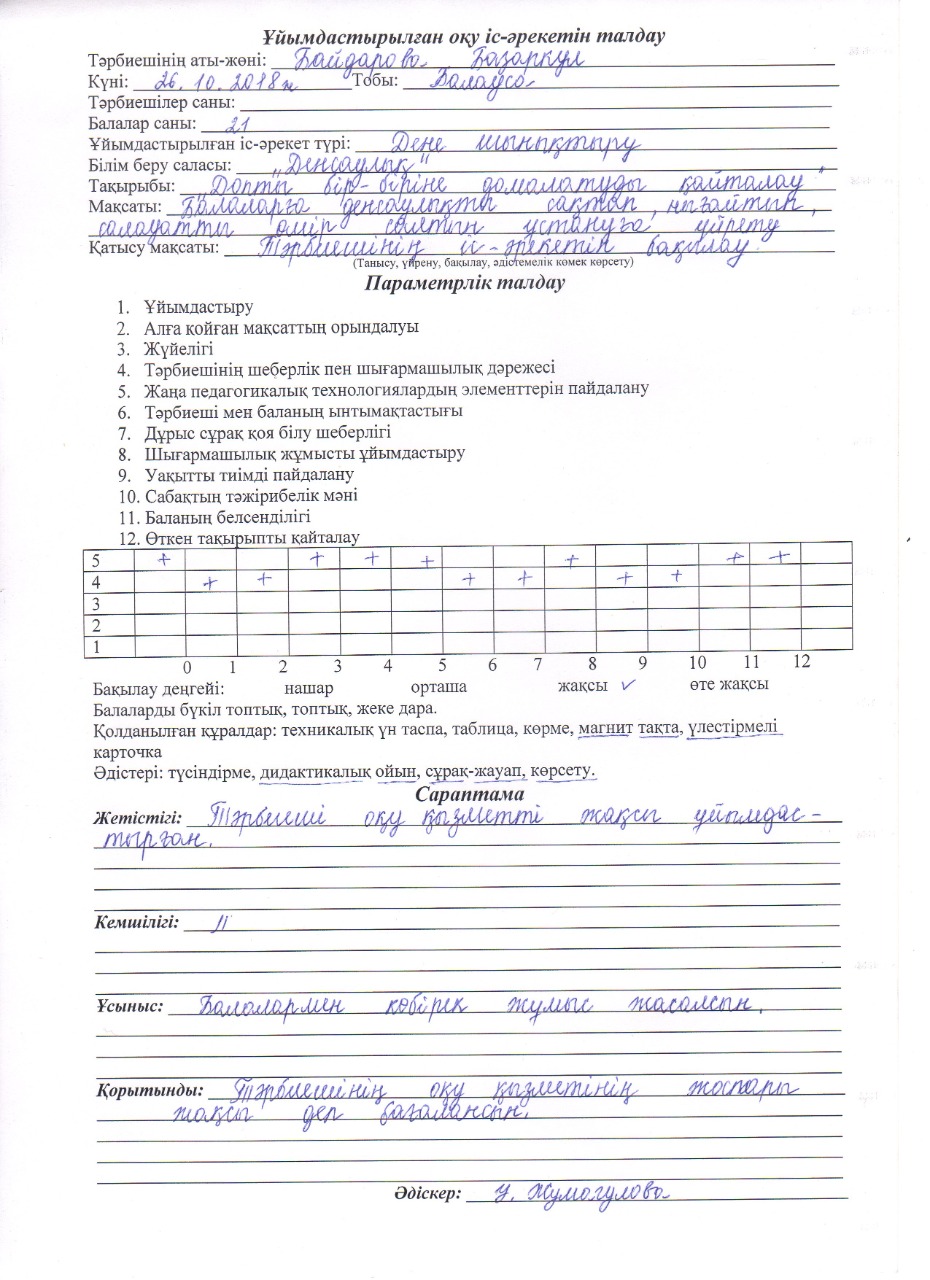 Ұйымдастырылған оқу іс-әрекетін талдау
Тәрбиешінің аты-жөні: Байдарова Базаркул
Күні: 26.10.2018ж Тобы: Балауса
Тәрбиешілер саны:
Балалар саны: 21
Ұйымдастырылған іс-әрекет түрі: Дене шынықтыру
Білім беру саласы: „Денсаулық"
Тақырыбы: „Допты бір-біріне домалатуды қайталау"
Мақсаты: Балаларға денсаулықты сақтап, нығайтып,
салауатты өмір салтын ұстануға үйрету
Қатысу мақсаты: Тәрбиешінің іс-әрекетін бақылау.
(Танысу, үйрену, бақылау, әдістемелік көмек көрсету)
Параметрлік талдау
1. Ұйымдастыру
2. Алға қойған мақсаттың орындалуы
3. Жүйелігі
4. Тәрбиешінің шеберлік пен шығармашылық дәрежесі
5. Жаңа педагогикалық технологиялардың элементтерін пайдалану
6. Тәрбиеші мен баланың ынтымақтастығы
7. Дұрыс сұрақ қоя білу шеберлігі
8. Шығармашылық жұмысты ұйымдастыру
9. Уақытты тиімді пайдалану
10. Сабақтың тәжірибелік мәні
11. Баланың белсенділігі
12. Өткен тақырыпты қайталау
5 + + + + + + +
4 + + + + + +
3
2
1
0 1 2 3 4 5 6 7 8 9 10 11 12
Бақылау деңгейі: нашар орташа жақсы ✓ өте жақсы
Балаларды бүкіл топтық, топтық, жеке дара.
Қолданылған құралдар: техникалық үн таспа, таблица, көрме, магнит тақта, үлестірмелі
карточка
Әдістері: түсіндірме, дидактикалық ойын, сұрақ-жауап, көрсету.
Сараптама
Жетістігі: Тәрбиеші оқу қызметті жақсы ұйымдас-
тырған.
Кемшілігі:
Ұсыныс: Балалармен көбірек жұмыс жасалсын.
Қорытынды: Тәрбиешінің оқу қызметінің жоспары
жақсы деп бағалансын.
Әдіскер: У. Жумагулова